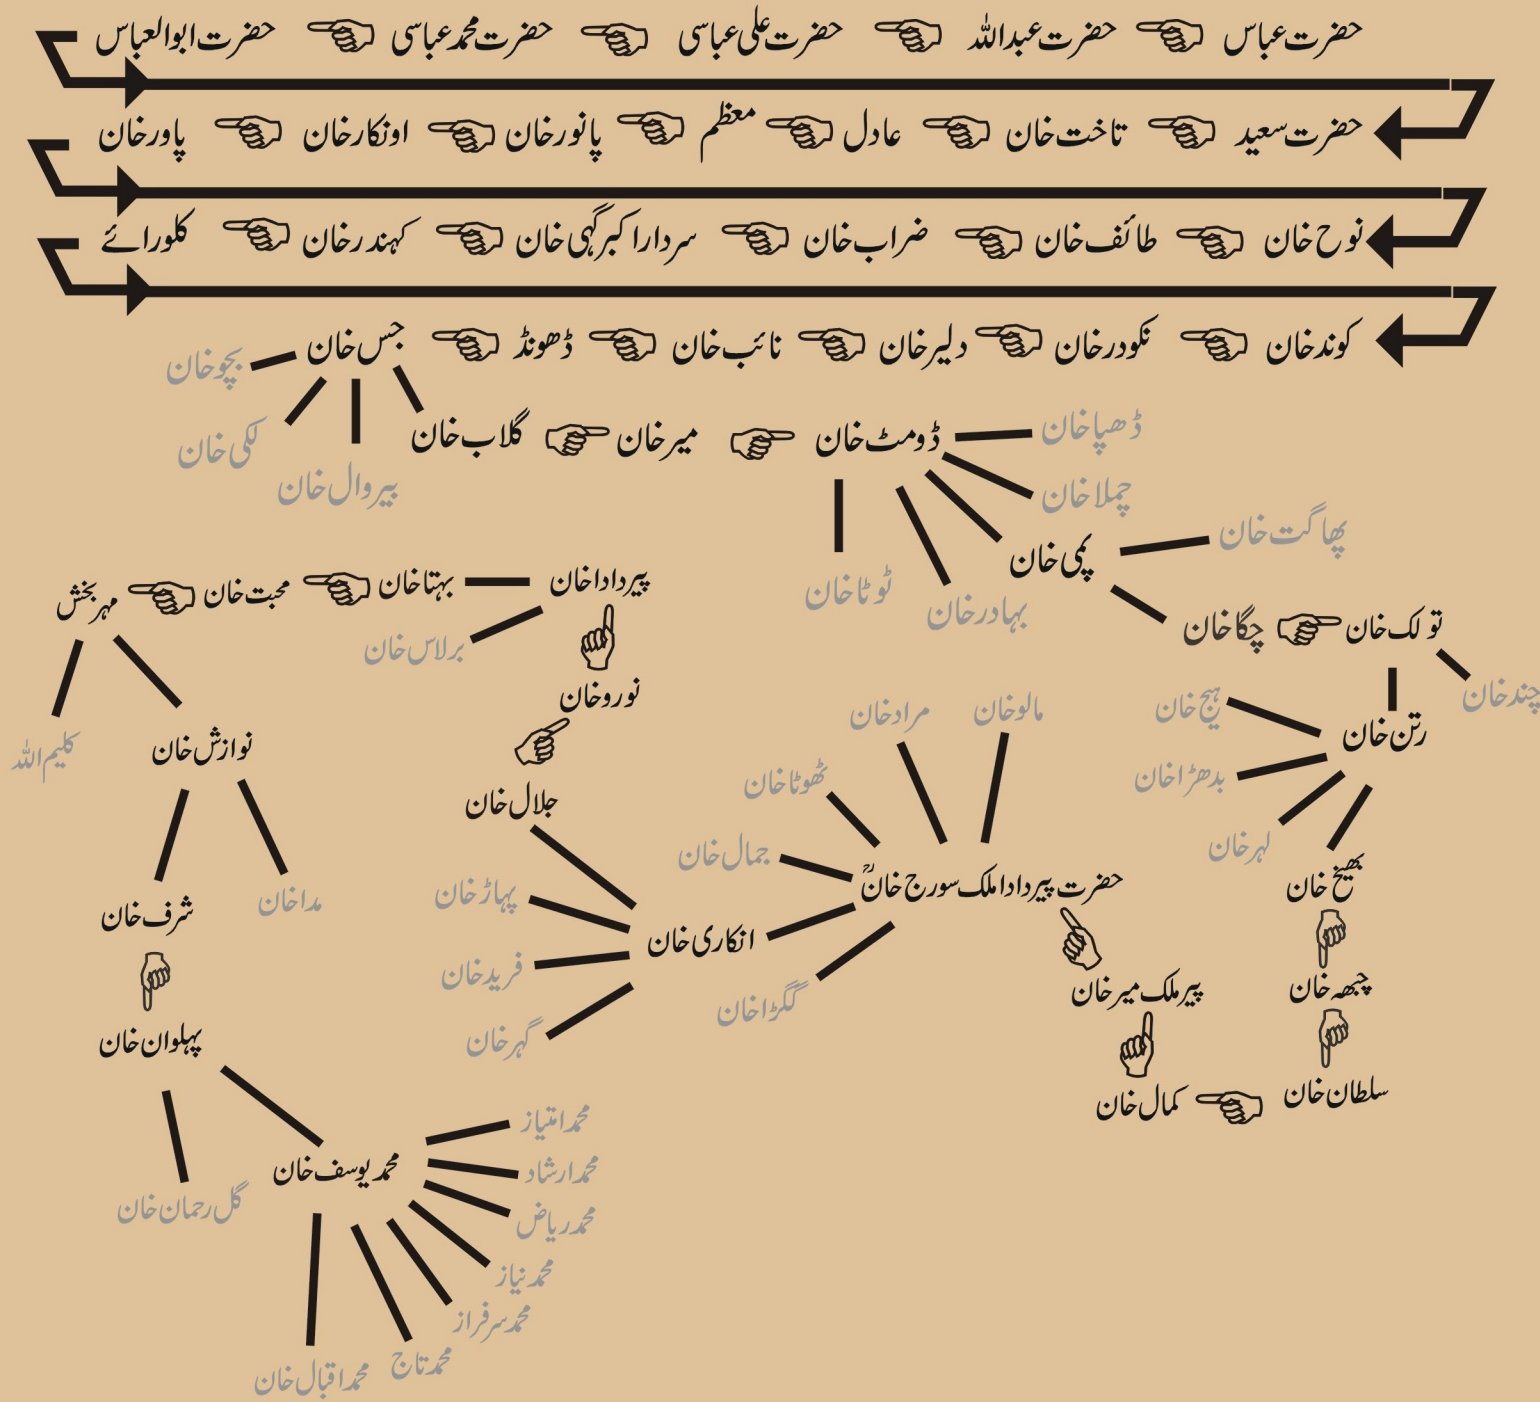 حضرت عباس حضرت عبداللہ حضرت علی عباسی حضرت محمد عباسی حضرت ابوالعباس
حضرت سعید تاخت خان عادل معظم پانور خان اونکار خان پاور خان
نوح خان طائف خان ضراب خان سردار اکبر گہی خان کہندر خان کلورائے
کوند خان نکودر خان دلیر خان نائب خان ڈھونڈ جس خان
بجو خان
لکی خان
بیروال خان
گلاب خان میر خان ڈومٹ خان
ڈھپا خان
چملا خان
پمی خان
بہادر خان
ٹوٹا خان
پھاگت خان
چگا خان تولک خان
چند خان
رتن خان
بدھڑا خان
لہر خان
بھیخ خان
چبھہ خان
سلطان خان
کمال خان
پیر ملک میر خان
حضرت پیر دادا ملک سورج خانؒ
مالو خان
مراد خان
ٹھوٹا خان
جمال خان
گگڑا خان
انکاری خان
گہر خان
فرید خان
پہاڑ خان
جلال خان
نورو خان
پیر دادا خان
برلاس خان
بہتا خان محبت خان مہر بخش
کلیم اللہ
نوازش خان
مدا خان
شرف خان
پہلوان خان
گل رحمان خان
محمد یوسف خان
محمد امتیاز
محمد ارشاد
محمد ریاض
محمد نیاز
محمد سرفراز
محمد تاج
محمد اقبال خان